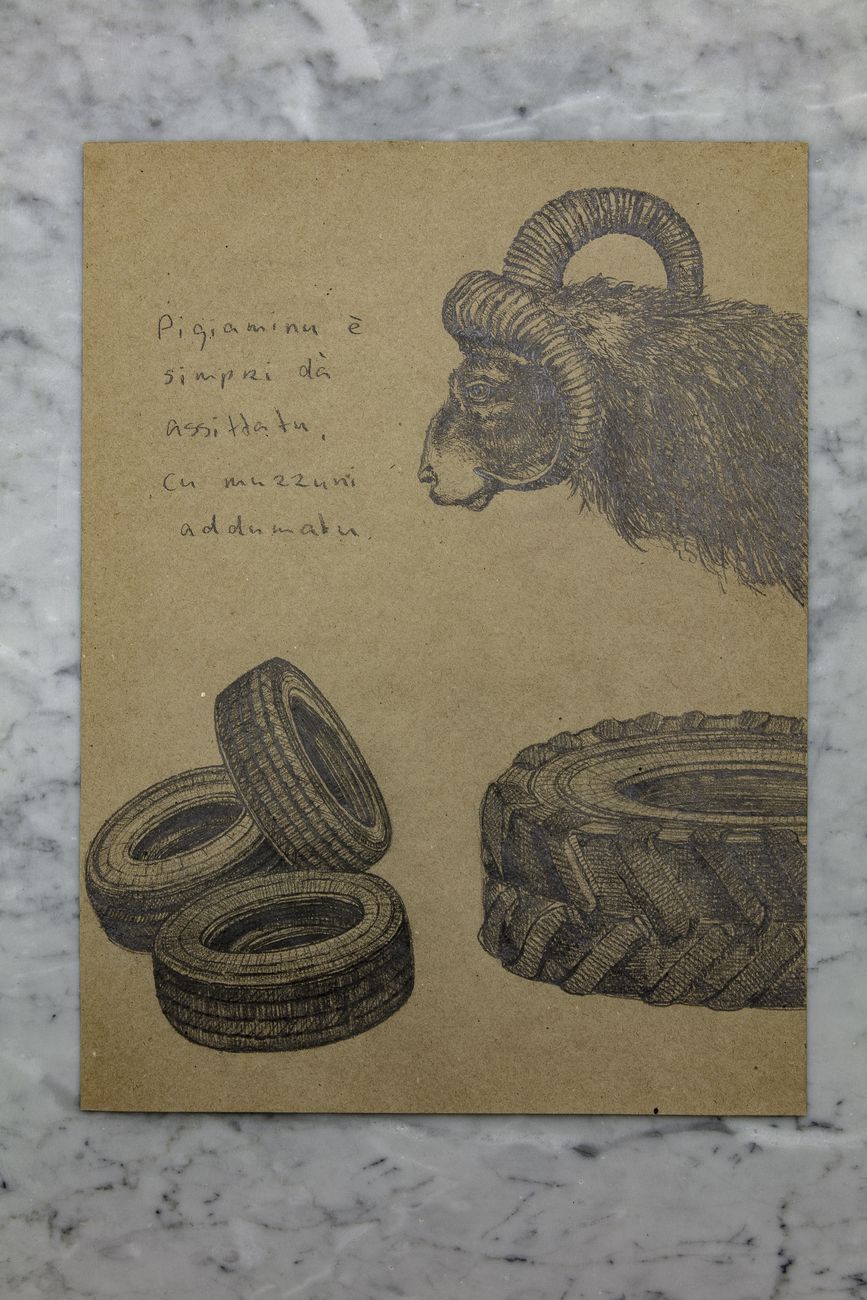 Pigiaminu è
simpri dà
assittatu,
cu muzzuni
addumatu.